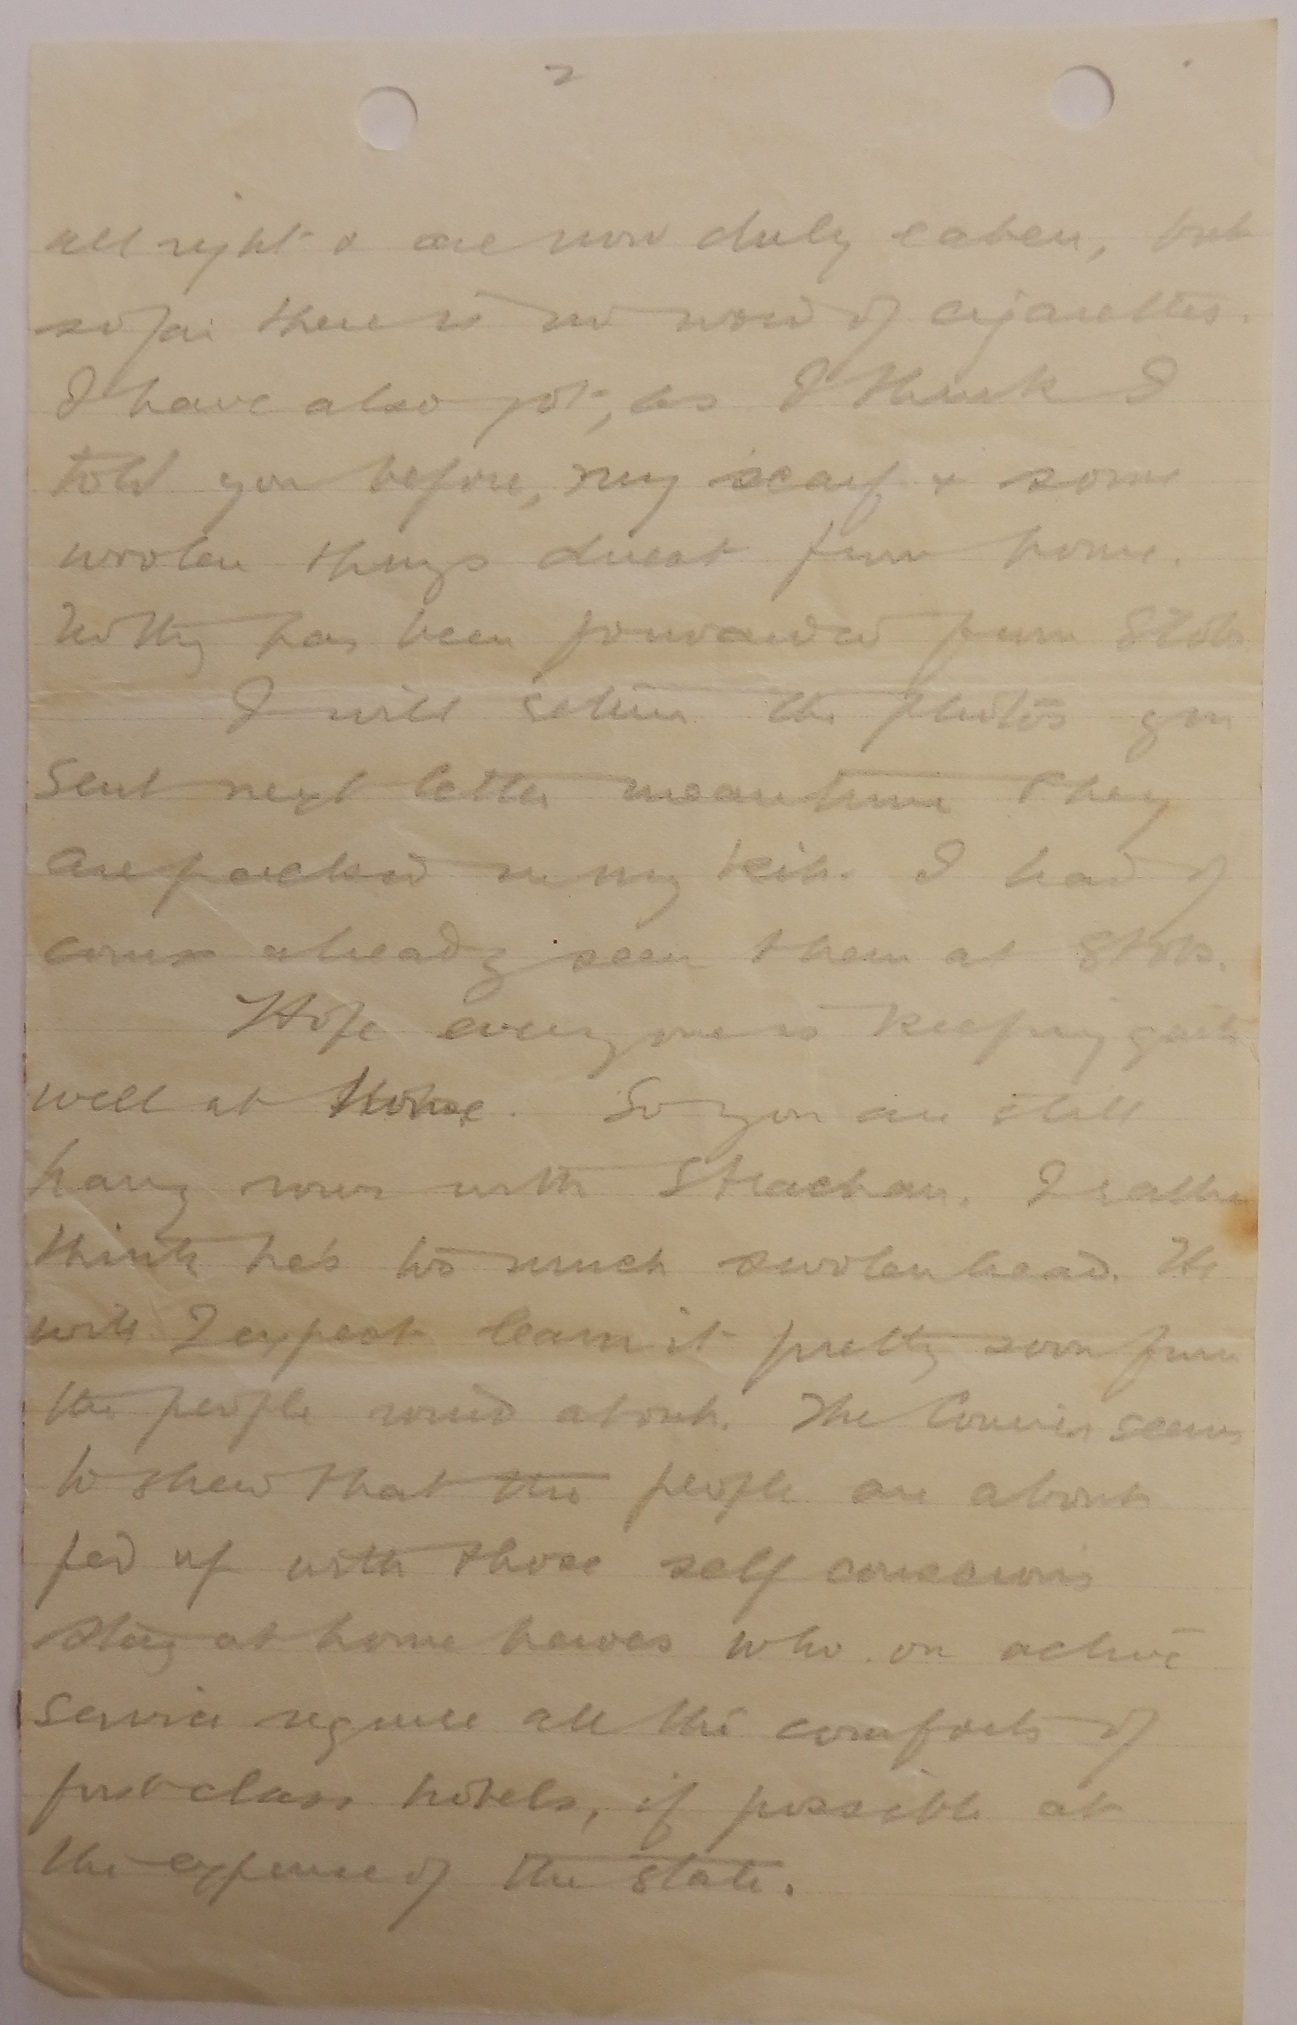 2
all right & are now duly eaten, but
so far there is no word of cigarettes.
I have also got, as I think I
told you before, my scarf & some
woolen things direct from home.
Nothg has been forwarded from Stobs
I will return the photos you
sent next letter meantime they
are packed in my kit. I had of
course already seen them at Stobs.
Hope every one is keeping quite
well at Home. So you are still
having rows with Strachan. I rather
think he's too much swolen head. He
will I expect learn it pretty soon from
the people round about. The Courier seems
to shew that the people are about
fed up with those self conscious
stay at home heroes who on active
service require all the comforts of
first class hotels, if possible at
the expense of the state.